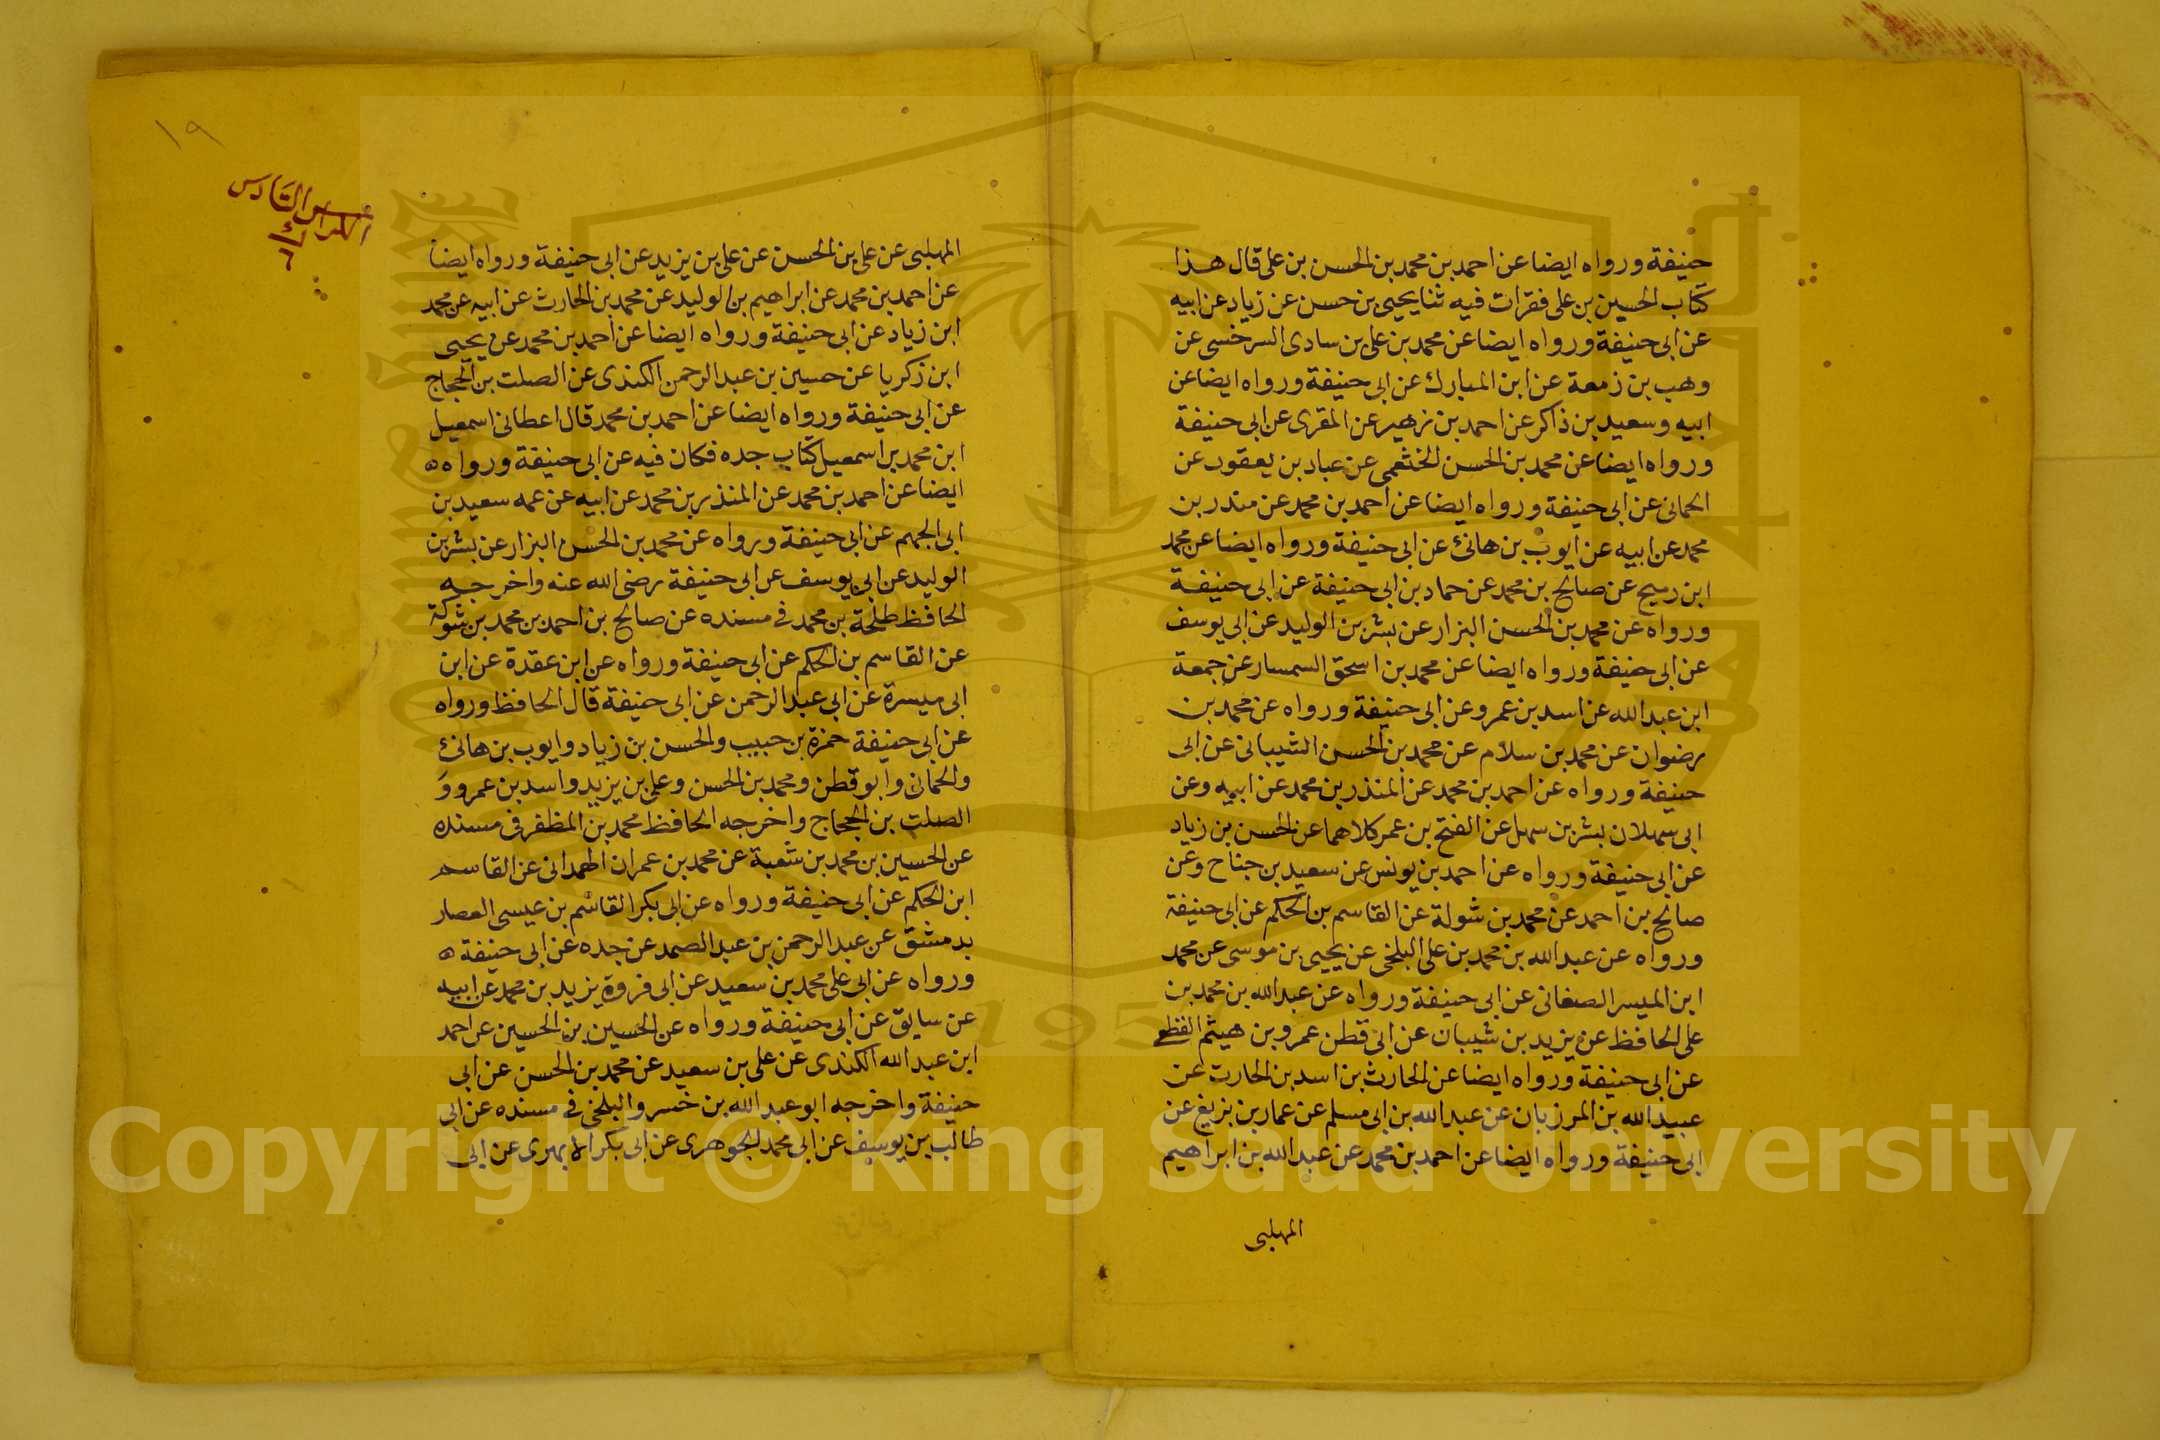 حنيفة ورواه ايضا عن احمد بن محمد بن الحسن بن على قال هذا
كتاب الحسين بن على فقرات فيه ثنا يحيى بن حسن عن زياد عن ابيه
عن ابى حنيفة ورواه ايضا عن محمد بن على بن سادى السرخسى عن
وهب بن زمعة عن ابن المبارك عن ابى حنيفة ورواه ايضا عن
ابيه وسعيد بن ذاكر عن احمد بن زهير عن المقرى عن ابى حنيفة
ورواه ايضا عن محمد بن الحسن الخثعمى عن عباد بن يعقوب عن
الحمانى عن ابى حنيفة ورواه ايضا عن احمد بن محمد عن منذر بن
محمد عن ابيه عن ايوب بن هانئ عن ابى حنيفة ورواه ايضا عن محمد
ابن رميح عن صالح بن محمد عن حماد بن ابى حنيفة عن ابى حنيفة
ورواه عن محمد بن الحسن البزار عن بشر بن الوليد عن ابى يوسف
عن ابى حنيفة ورواه ايضا عن محمد بن اسحق السمسار عن جمعة
ابن عبد الله عن اسد بن عمرو عن ابى حنيفة ورواه عن محمد بن
رضوان عن محمد بن سلام عن محمد بن الحسن الشيبانى عن ابى
حنيفة ورواه عن احمد بن محمد عن المنذر بن محمد عن ابيه وعن
ابى سهلان بشر بن سهل عن الفتح بن عمر كلاهما عن الحسن بن زياد
عن ابى حنيفة ورواه عن احمد بن يونس عن سعيد بن جناح وعن
صالح بن احمد عن محمد بن شولة عن القاسم بن الحكم عن ابى حنيفة
ورواه عن عبد الله بن محمد بن على البلخى عن يحيى بن موسى عن محمد
ابن الميسر الصغانى عن ابى حنيفة ورواه عن عبد الله بن محمد بن
على الحافظ عن يزيد بن شيبان عن ابى قطن عمرو بن هيثم
عن ابى حنيفة ورواه ايضا عن الحارث بن اسد بن الحارث عن
عبيد الله بن المرزبان عن عبد الله بن ابى مسلم عن عمار بن بزيغ عن
ابى حنيفة ورواه ايضا عن احمد بن محمد عن عبد الله بن ابراهيم
المهلبى
١٩
الكراس السادس
٦
المهلبى عن على بن الحسن عن على بن يزيد عن ابى حنيفة ورواه ايضا
عن احمد بن محمد عن ابراهيم بن الوليد عن محمد بن الحارث عن ابيه عن محمد
ابن زياد عن ابى حنيفة ورواه ايضا عن احمد بن محمد عن يحيى
ابن زكريا عن حسين بن عبد الرحمن الكندى عن الصلت بن الحجاج
عن ابى حنيفة ورواه ايضا عن احمد بن محمد قال اعطانى اسمعيل
ابن محمد بن اسمعيل كتاب جده فكان فيه عن ابى حنيفة ورواه ه
ايضا عن احمد بن محمد عن المنذر بن محمد عن ابيه عن عمه سعيد بن
ابى الجهم عن ابى حنيفة ورواه عن محمد بن الحسن البزار عن بشر بن
الوليد عن ابى يوسف عن ابى حنيفة رضى الله عنه واخرجه
الحافظ طلحة بن محمد فى مسنده عن صالح بن احمد بن محمد بن شوكة
عن القاسم بن الحكم عن ابى حنيفة ورواه عن ابن عقدة عن ابن
ابى ميسرة عن ابى عبد الرحمن عن ابى حنيفة قال الحافظ ورواه
عن ابى حنيفة حمزة بن حبيب والحسن بن زياد وايوب بن هانئ
والحمانى وابو قطن ومحمد بن الحسن وعلى بن يزيد واسد بن عمرو و
الصلت بن الحجاج واخرجه الحافظ محمد بن المظفر فى مسنده
عن الحسين بن محمد بن شعبة عن محمد بن عمران الهمدانى عن القاسم
ابن الحكم عن ابى حنيفة ورواه عن ابى بكر القاسم بن عيسى العصار
بدمشق عن عبد الرحمن بن عبد الصمد عن جده عن ابى حنيفة ه
ورواه عن ابى على محمد بن سعيد عن ابى فروة يزيد بن محمد عن ابيه
عن سابق عن ابى حنيفة ورواه عن الحسين بن الحسين عن احمد
ابن عبد الله الكندى عن على بن سعيد عن محمد بن الحسن عن ابى
حنيفة واخرجه ابو عبد الله بن خسرو البلخى فى مسنده عن ابى
طالب بن يوسف عن ابى محمد الجوهرى عن ابى بكر الابهرى عن ابى
Copyright © King Saud University
1957